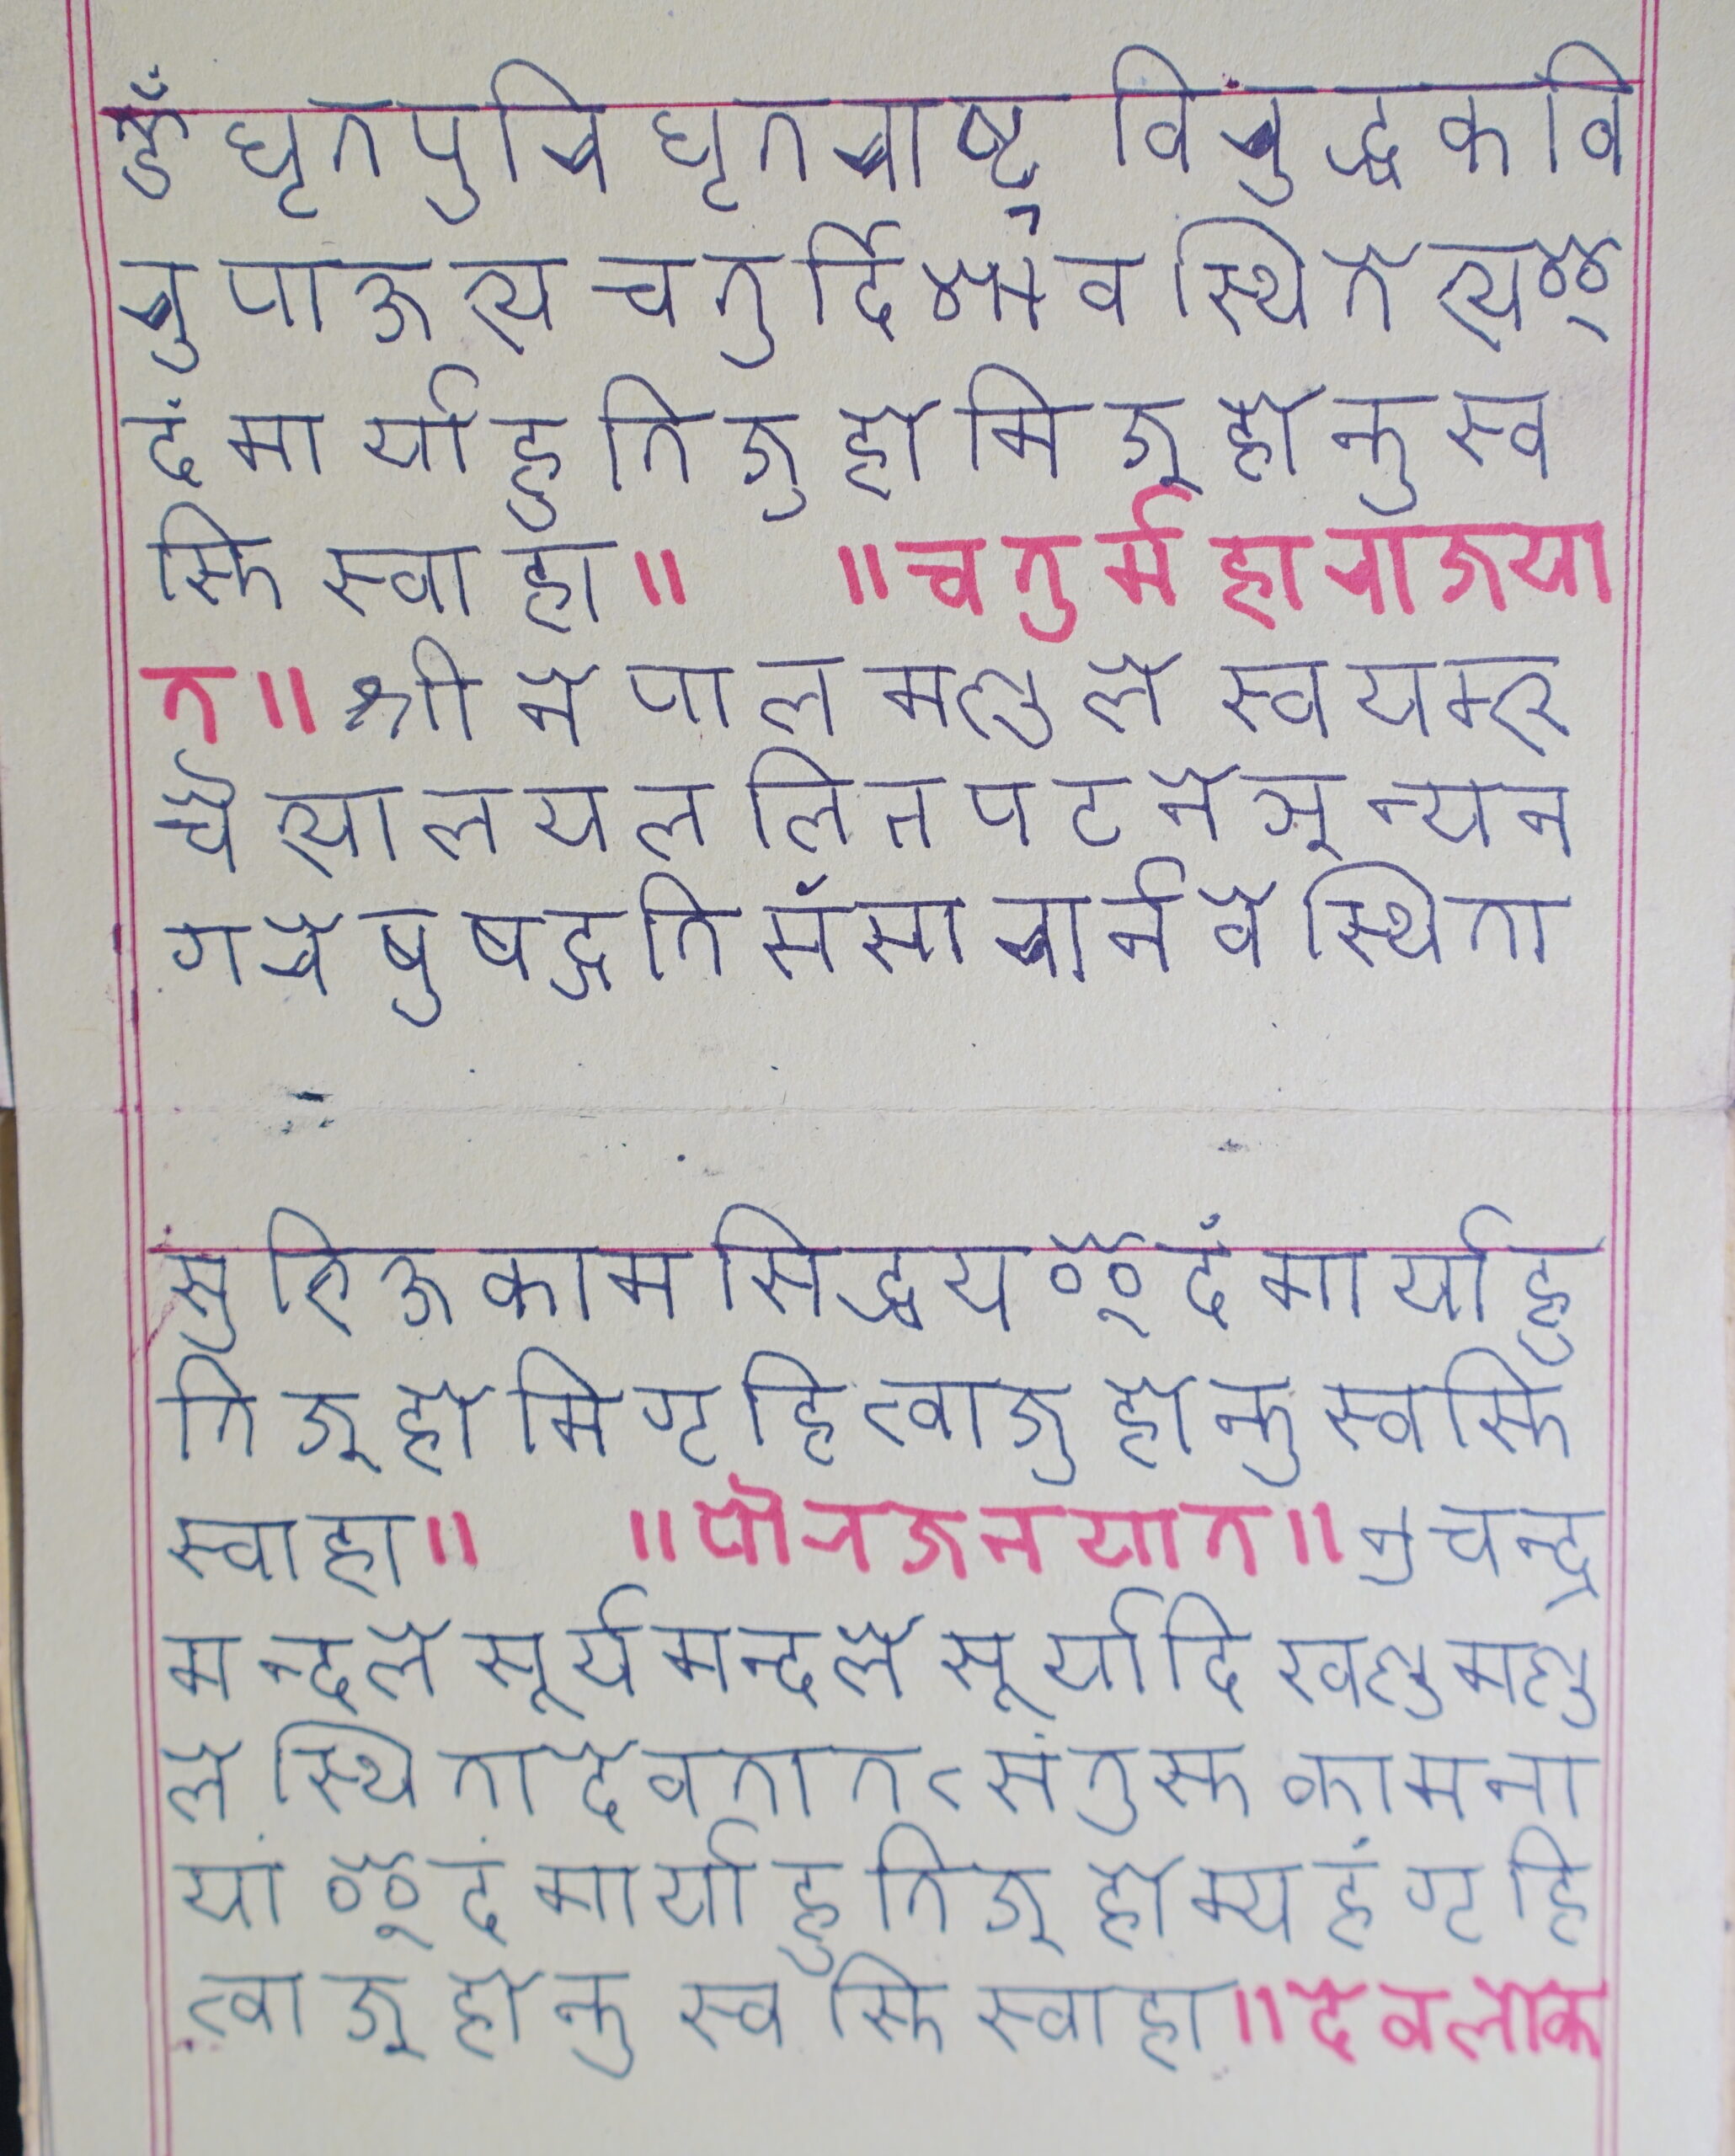 ॐ धृतपुरि धृतराष्ट्र विरुद्धकवि
रुपाऊत्य चतुर्दिशाव स्थितेत्यइ
दंमार्याहुतिजुहोमिजूहोतुस्व
स्ति स्वाहा॥ ॥चतुर्महाराजया
त॥श्री नेपालमण्डले स्वयम्भू
चैत्यालयललितपटनेसून्यन
गरेषुषद्गतिसंसारर्नवेस्थिता
सुतिऊकामसिद्धयइदंमार्याहु
तिजूहोमिगृहित्वाजुहोतुस्वस्ति
स्वाहा॥ ॥पौनजनयात॥नुचन्द्र
मन्दलेसूर्यमन्दलेसूर्यादिखण्डमण्ड
लेस्थितादेवतातत्संतुस्तकामना
यां इदंमार्याहुतिजूहोम्यहंगृहि
त्वाजूहोतु स्वस्ति स्वाहा॥देवलोक